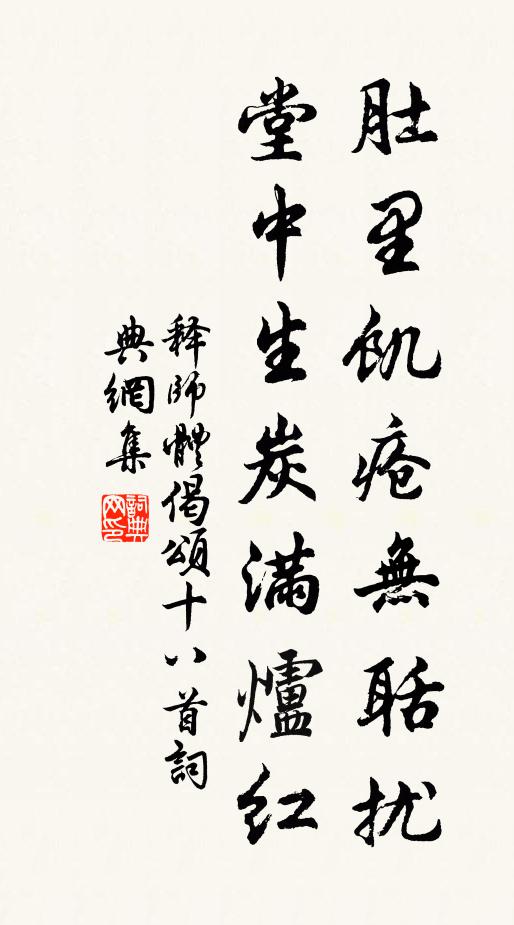 肚里飢瘡無聒扰
堂中生炭満爐红
释師體偈頌十八首詞
典網集
詞典
网印